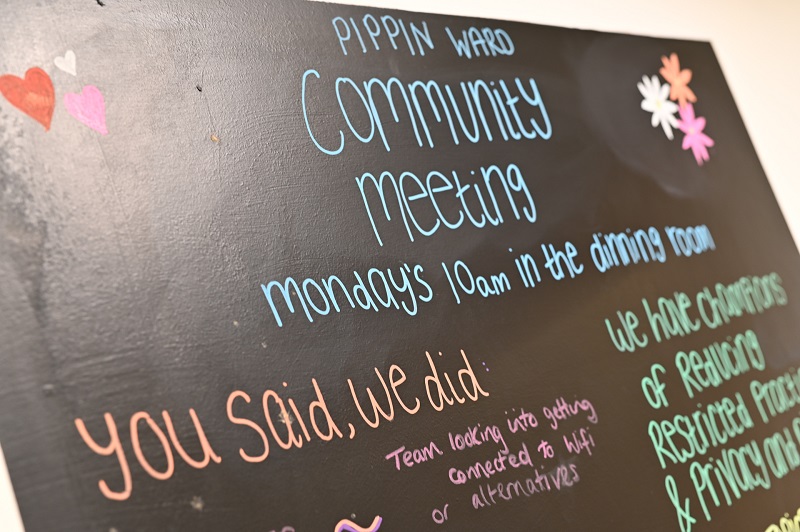 PIPPIN WARD
Community
meeting
monday's 10am in the dinning room
you said, we did
Team looking into getting
connected to Wifi
or alternatives
we have champions
of Reducing
Restricted
& Privacy and